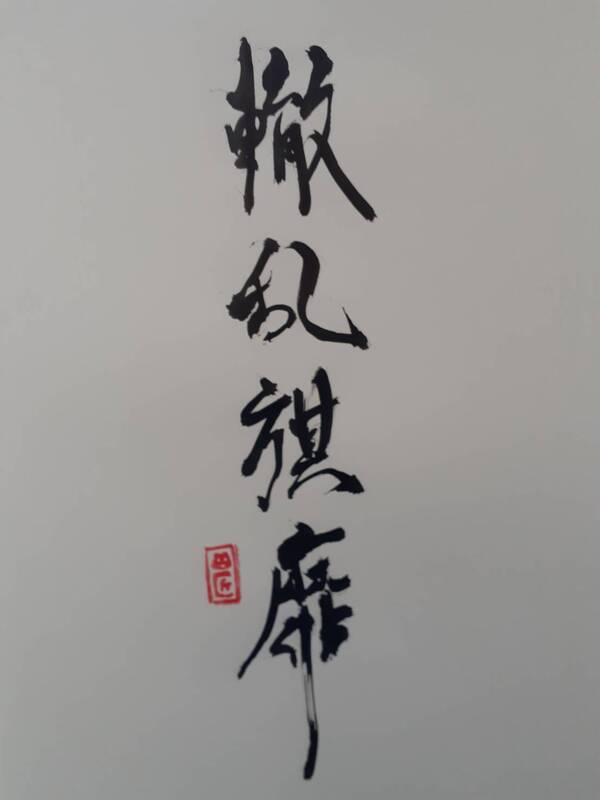 轍乱旗靡